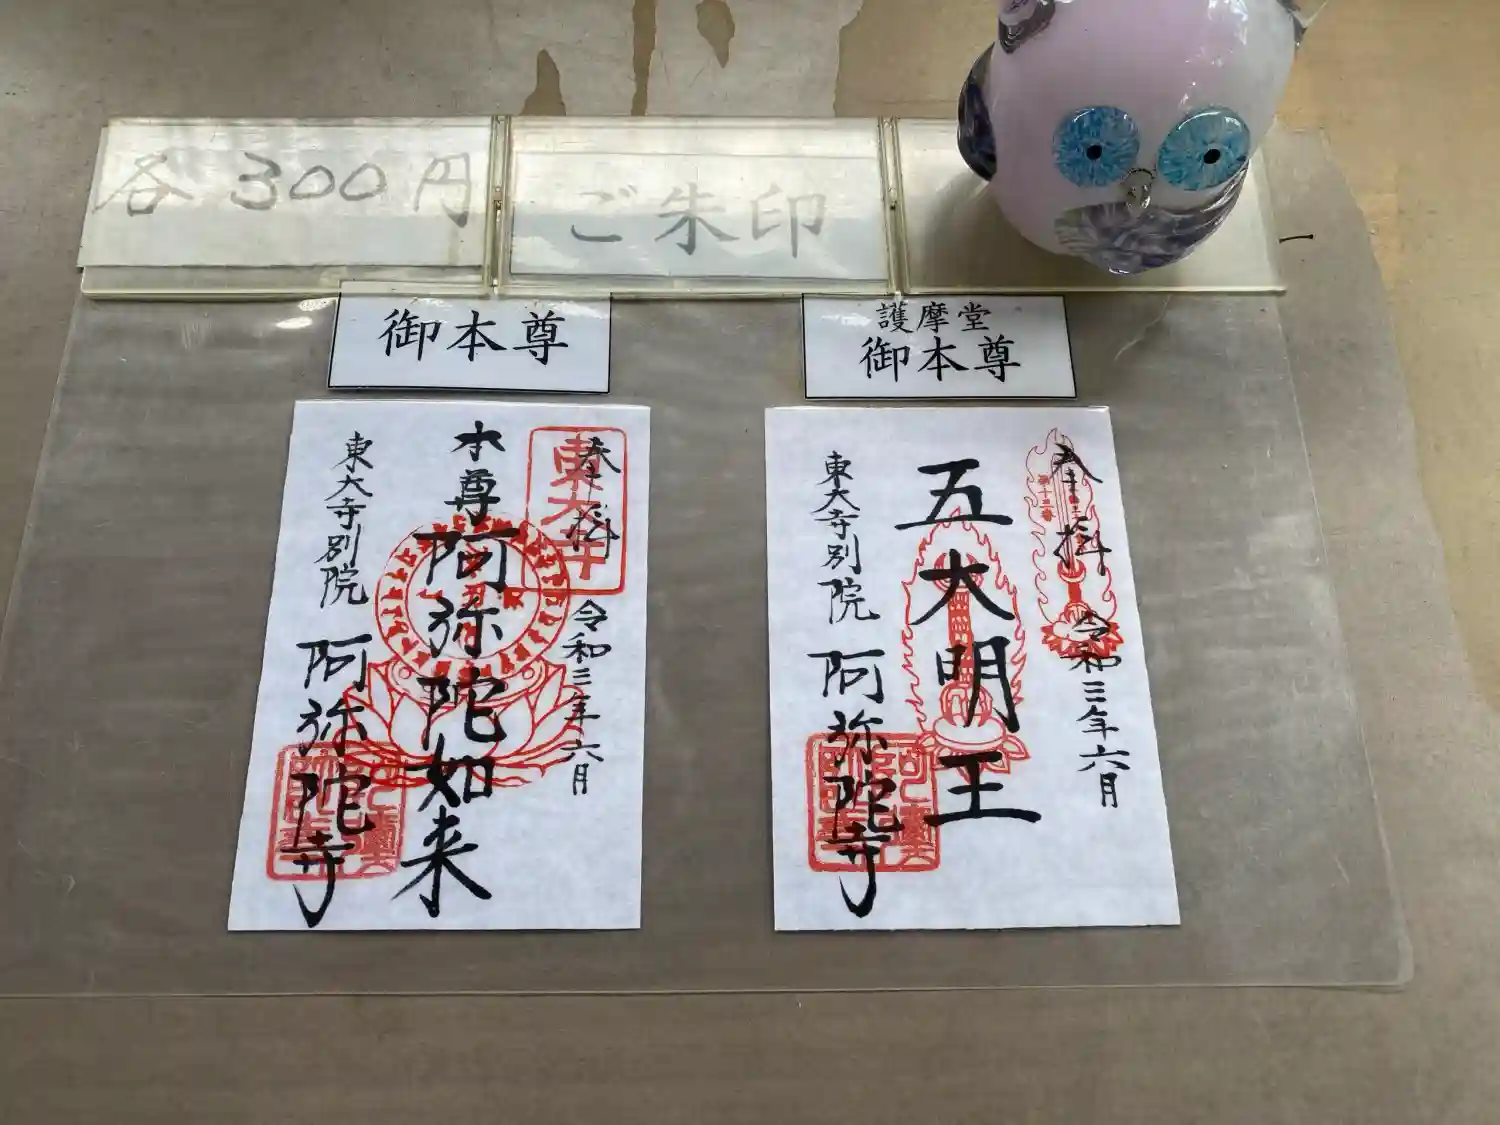 各300円
ご朱印
御本尊
護摩堂
御本尊
奉拝
令和三年六月
本尊阿弥陀如来
東大寺別院
阿弥陀寺
東大寺
奉拝
令和三年六月
五大明王
東大寺別院
阿弥陀寺